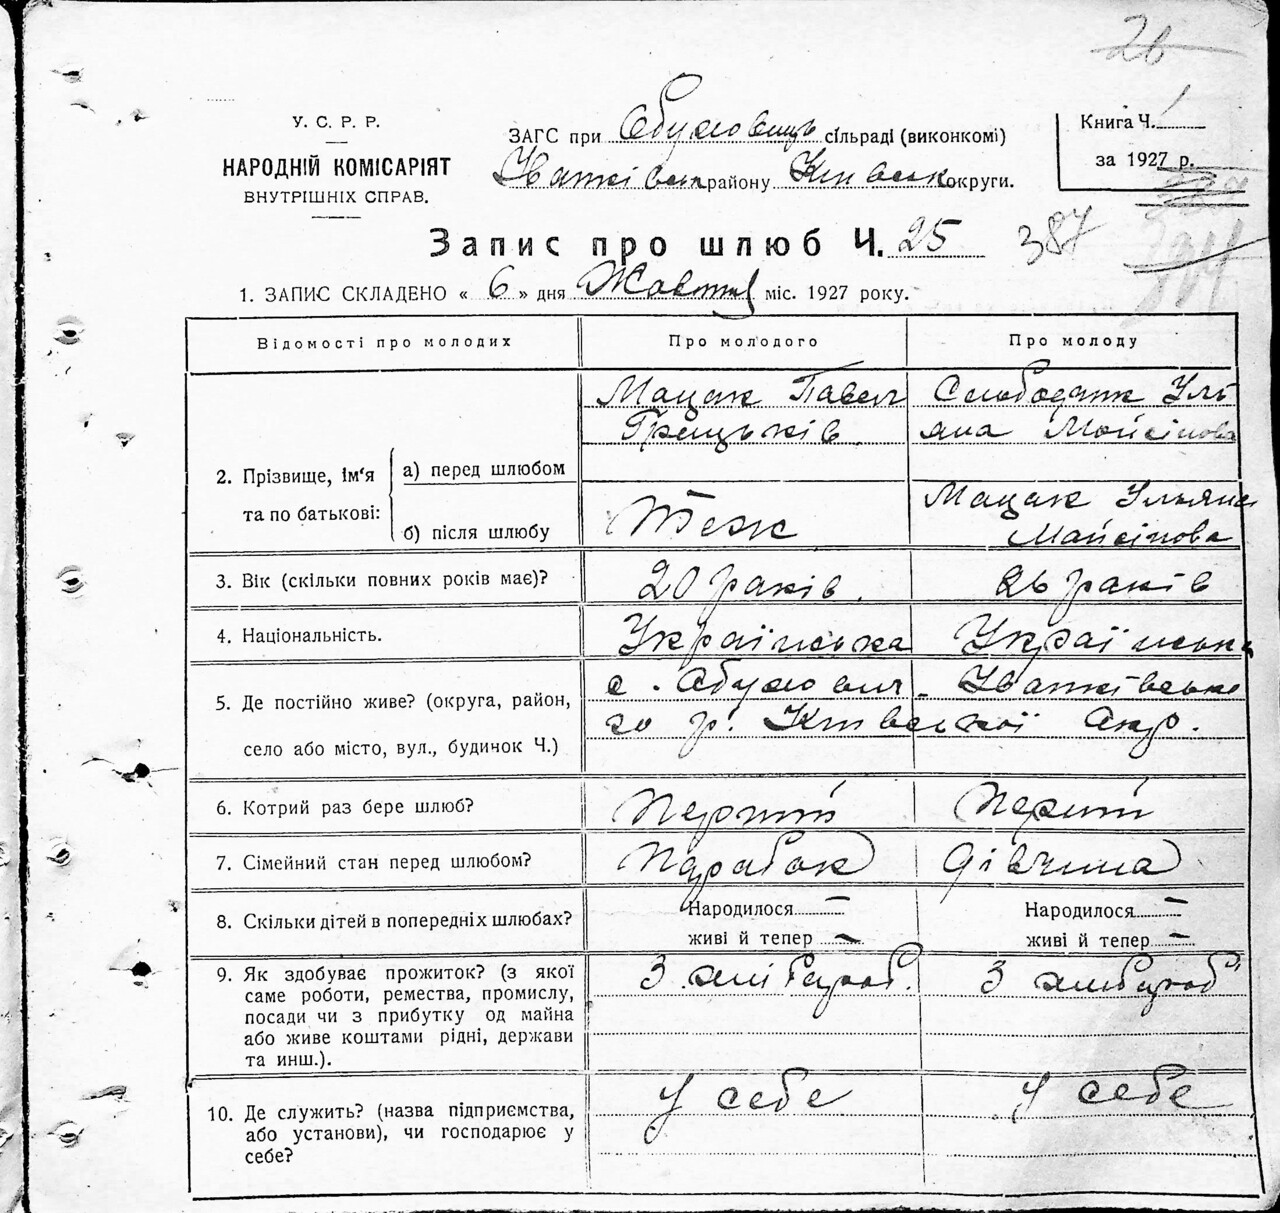 26
У. С. Р. Р.
НАРОДНІЙ КОМІСАРІЯТ
ВНУТРІШНІХ СПРАВ.
ЗАГС при Обухович сільраді (виконкомі)
району Київськ округи.
Книга Ч. 1
за 1927 р.
Запис про шлюб Ч. 25
387
1. ЗАПИС СКЛАДЕНО « 6 » дня Жовтня міс. 1927 року.
Відомості про молодих Про молодого Про молоду
2. Прізвище, ім'я та по батькові:
а) перед шлюбом
Мацак Павел
Грицьків
Слободяк Уль
яна Мойсіпова
б) після шлюбу
Теж
Мацак Ульяна
Мойсіпова
3. Вік (скільки повних років має)? 20 років. 26 років
4. Національність. Українська Українська
5. Де постійно живе? (округа, район,
село або місто, вул., будинок Ч.)
с. Обухович
го р. Київської Окр.
6. Котрий раз бере шлюб? Перший Перший
7. Сімейний стан перед шлюбом? Парабок Дівчина
8. Скільки дітей в попередніх шлюбах? Народилося — Народилося —
живі й тепер — живі й тепер —
9. Як здобуває прожиток? (з якої
саме роботи, ремества, промислу,
посади чи з прибутку од майна
або живе коштами рідні, держави
та инш.).
З хлібороб. З хлібороб
10. Де служить? (назва підприємства,
або установи), чи господарює у
себе?
У себе У себе